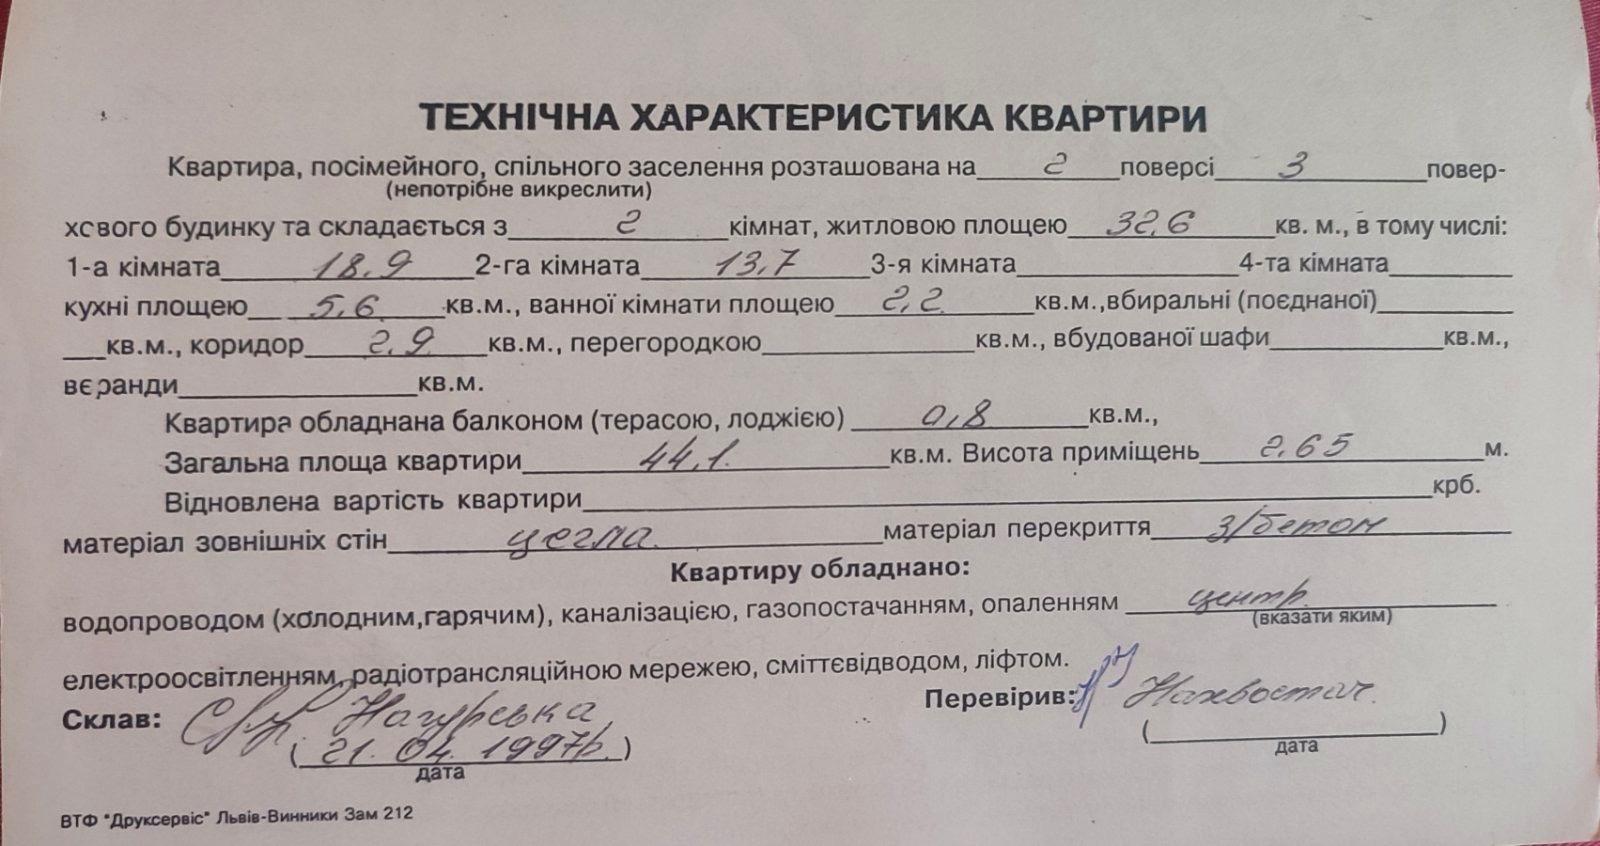 ТЕХНІЧНА ХАРАКТЕРИСТИКА КВАРТИРИ
Квартира, посімейного, спільного заселення розташована на 2 поверсі 3 повер-
(непотрібне викреслити)
хового будинку та складається з 2 кімнат, житловою площею 32,6 кв. м., в тому числі:
1-а кімната 18,9 2-га кімната 13,7 3-я кімната 4-та кімната
кухні площею 5,6 кв.м., ванної кімнати площею 2,2 кв.м.,вбиральні (поєднаної)
кв.м., коридор 2,9 кв.м., перегородкою кв.м., вбудованої шафи кв.м.,
веранди кв.м.
Квартира обладнана балконом (терасою, лоджією) 0,8 кв.м.,
Загальна площа квартири 44,1. кв.м. Висота приміщень 2,65 м.
Відновлена вартість квартири крб.
матеріал зовнішніх стін цегла. матеріал перекриття з/бетон
Квартиру обладнано:
водопроводом (холодним,гарячим), каналізацією, газопостачанням, опаленням центр.
(вказати яким)
електроосвітленням, радіотрансляційною мережею, сміттєвідводом, ліфтом.
Склав: Нагурська Перевірив: Нахвостач.
( 21. 04. 1997р. ) ( )
дата дата
ВТФ "Друксервіс" Львів-Винники Зам 212